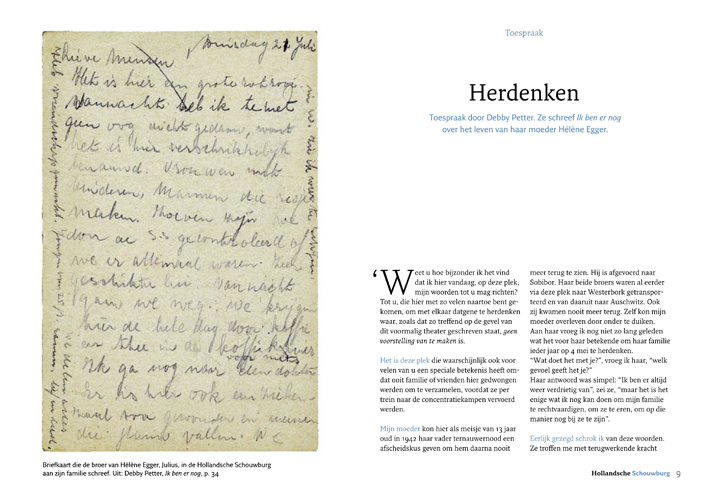 Dinsdag 21 Juli
Lieve Mensen
Het is hier een grote
Vannacht heb ik te met
geen oog dicht gedaan, want
het is hier verschrikkelijk
benauwd. Vrouwen met
kinderen, Mannen die
maken. Thoeven zijn we
door de S.S gecontroleerd of
we er allemaal waren. Zeer
geschikte lui. Vannacht
gaan we weg. We krijgen
hier de hele dag door koffie
en thee in de koffiekamer
voor niets
Ik ga nog naar een dokter
Er is hier ook een zieken-
zaal voor gewonden en mensen
die flauw vallen. W C
Briefkaart die de broer van Hélène Egger, Julius, in de Hollandsche Schouwburg
aan zijn familie schreef. Uit: Debby Petter, Ik ben er nog, p. 34
Toespraak
Herdenken
Toespraak door Debby Petter. Ze schreef Ik ben er nog
over het leven van haar moeder Hélène Egger.
‘Weet u hoe bijzonder ik het vind
dat ik hier vandaag, op deze plek,
mijn woorden tot u mag richten?
Tot u, die hier met zo velen naartoe bent ge-
komen, om met elkaar datgene te herdenken
waar, zoals dat zo treffend op de gevel van
dit voormalig theater geschreven staat, geen
voorstelling van te maken is.
Het is deze plek die waarschijnlijk ook voor
velen van u een speciale betekenis heeft om-
dat ooit familie of vrienden hier gedwongen
werden om te verzamelen, voordat ze per
trein naar de concentratiekampen vervoerd
werden.
Mijn moeder kon hier als meisje van 13 jaar
oud in 1942 haar vader ternauwernood een
afscheidskus geven om hem daarna nooit
meer terug te zien. Hij is afgevoerd naar
Sobibor. Haar beide broers waren al eerder
via deze plek naar Westerbork getranspor-
teerd en van daaruit naar Auschwitz. Ook
zij kwamen nooit meer terug. Zelf kon mijn
moeder overleven door onder te duiken.
Aan haar vroeg ik nog niet zo lang geleden
wat het voor haar betekende om haar familie
ieder jaar op 4 mei te herdenken.
“Wat doet het met je?”, vroeg ik haar, “welk
gevoel geeft het je?”
Haar antwoord was simpel: “Ik ben er altijd
weer verdrietig van”, zei ze, “maar het is het
enige wat ik nog kan doen om mijn familie
te rechtvaardigen, om ze te eren, om op die
manier nog bij ze te zijn”.
Eerlijk gezegd schrok ik van deze woorden.
Ze troffen me met terugwerkende kracht
Hollandsche Schouwburg 9